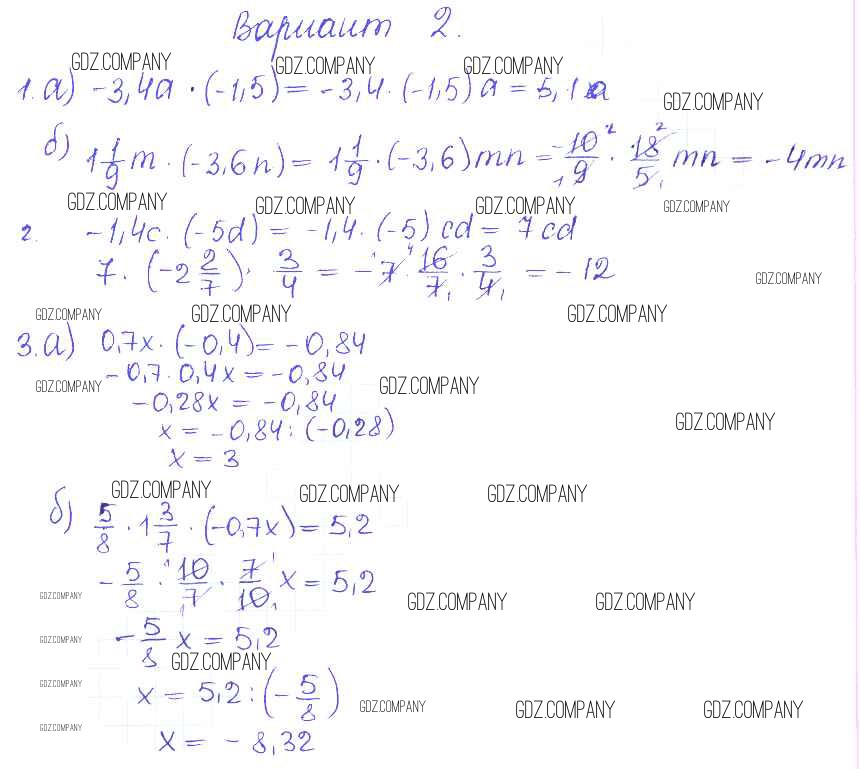 Вариант 2.
GDZ.COMPANY GDZ.COMPANY GDZ.COMPANY
1. а) -3,4a · (-1,5) = -3,4 · (-1,5) a = 5,1 a
GDZ.COMPANY
б) 1 1/9 m · (-3,6n) = 1 1/9 · (-3,6) mn = -10/9 · 18/5 mn = -4mn
GDZ.COMPANY GDZ.COMPANY GDZ.COMPANY GDZ.COMPANY
2. -1,4c · (-5d) = -1,4 · (-5) cd = 7 cd
7 · (-2 2/7) · 3/4 = -7 · 16/7 · 3/4 = -12
GDZ.COMPANY
GDZ.COMPANY GDZ.COMPANY GDZ.COMPANY
3. а) 0,7x · (-0,4) = -0,84
-0,7 · 0,4x = -0,84
GDZ.COMPANY GDZ.COMPANY
-0,28x = -0,84
GDZ.COMPANY
x = -0,84 : (-0,28)
x = 3
GDZ.COMPANY GDZ.COMPANY GDZ.COMPANY
б) 5/8 · 1 3/7 · (-0,7x) = 5,2
-5/8 · 10/7 · 7/10 x = 5,2
GDZ.COMPANY GDZ.COMPANY GDZ.COMPANY
-5/8 x = 5,2
GDZ.COMPANY
GDZ.COMPANY
GDZ.COMPANY
x = 5,2 : (-5/8)
GDZ.COMPANY GDZ.COMPANY GDZ.COMPANY
GDZ.COMPANY
x = -8,32